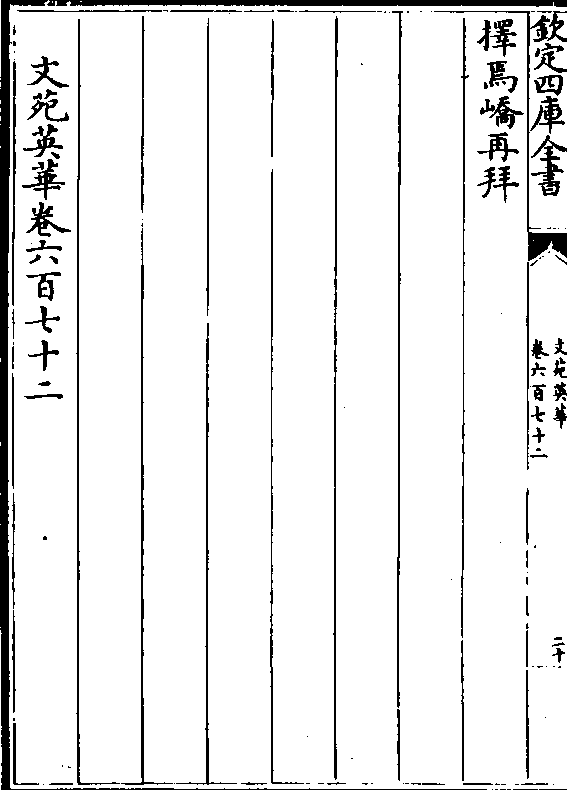 欽定四庫全書
文苑英華
卷六百七十二
二十
擇焉嶠再拜
文苑英華卷六百七十二